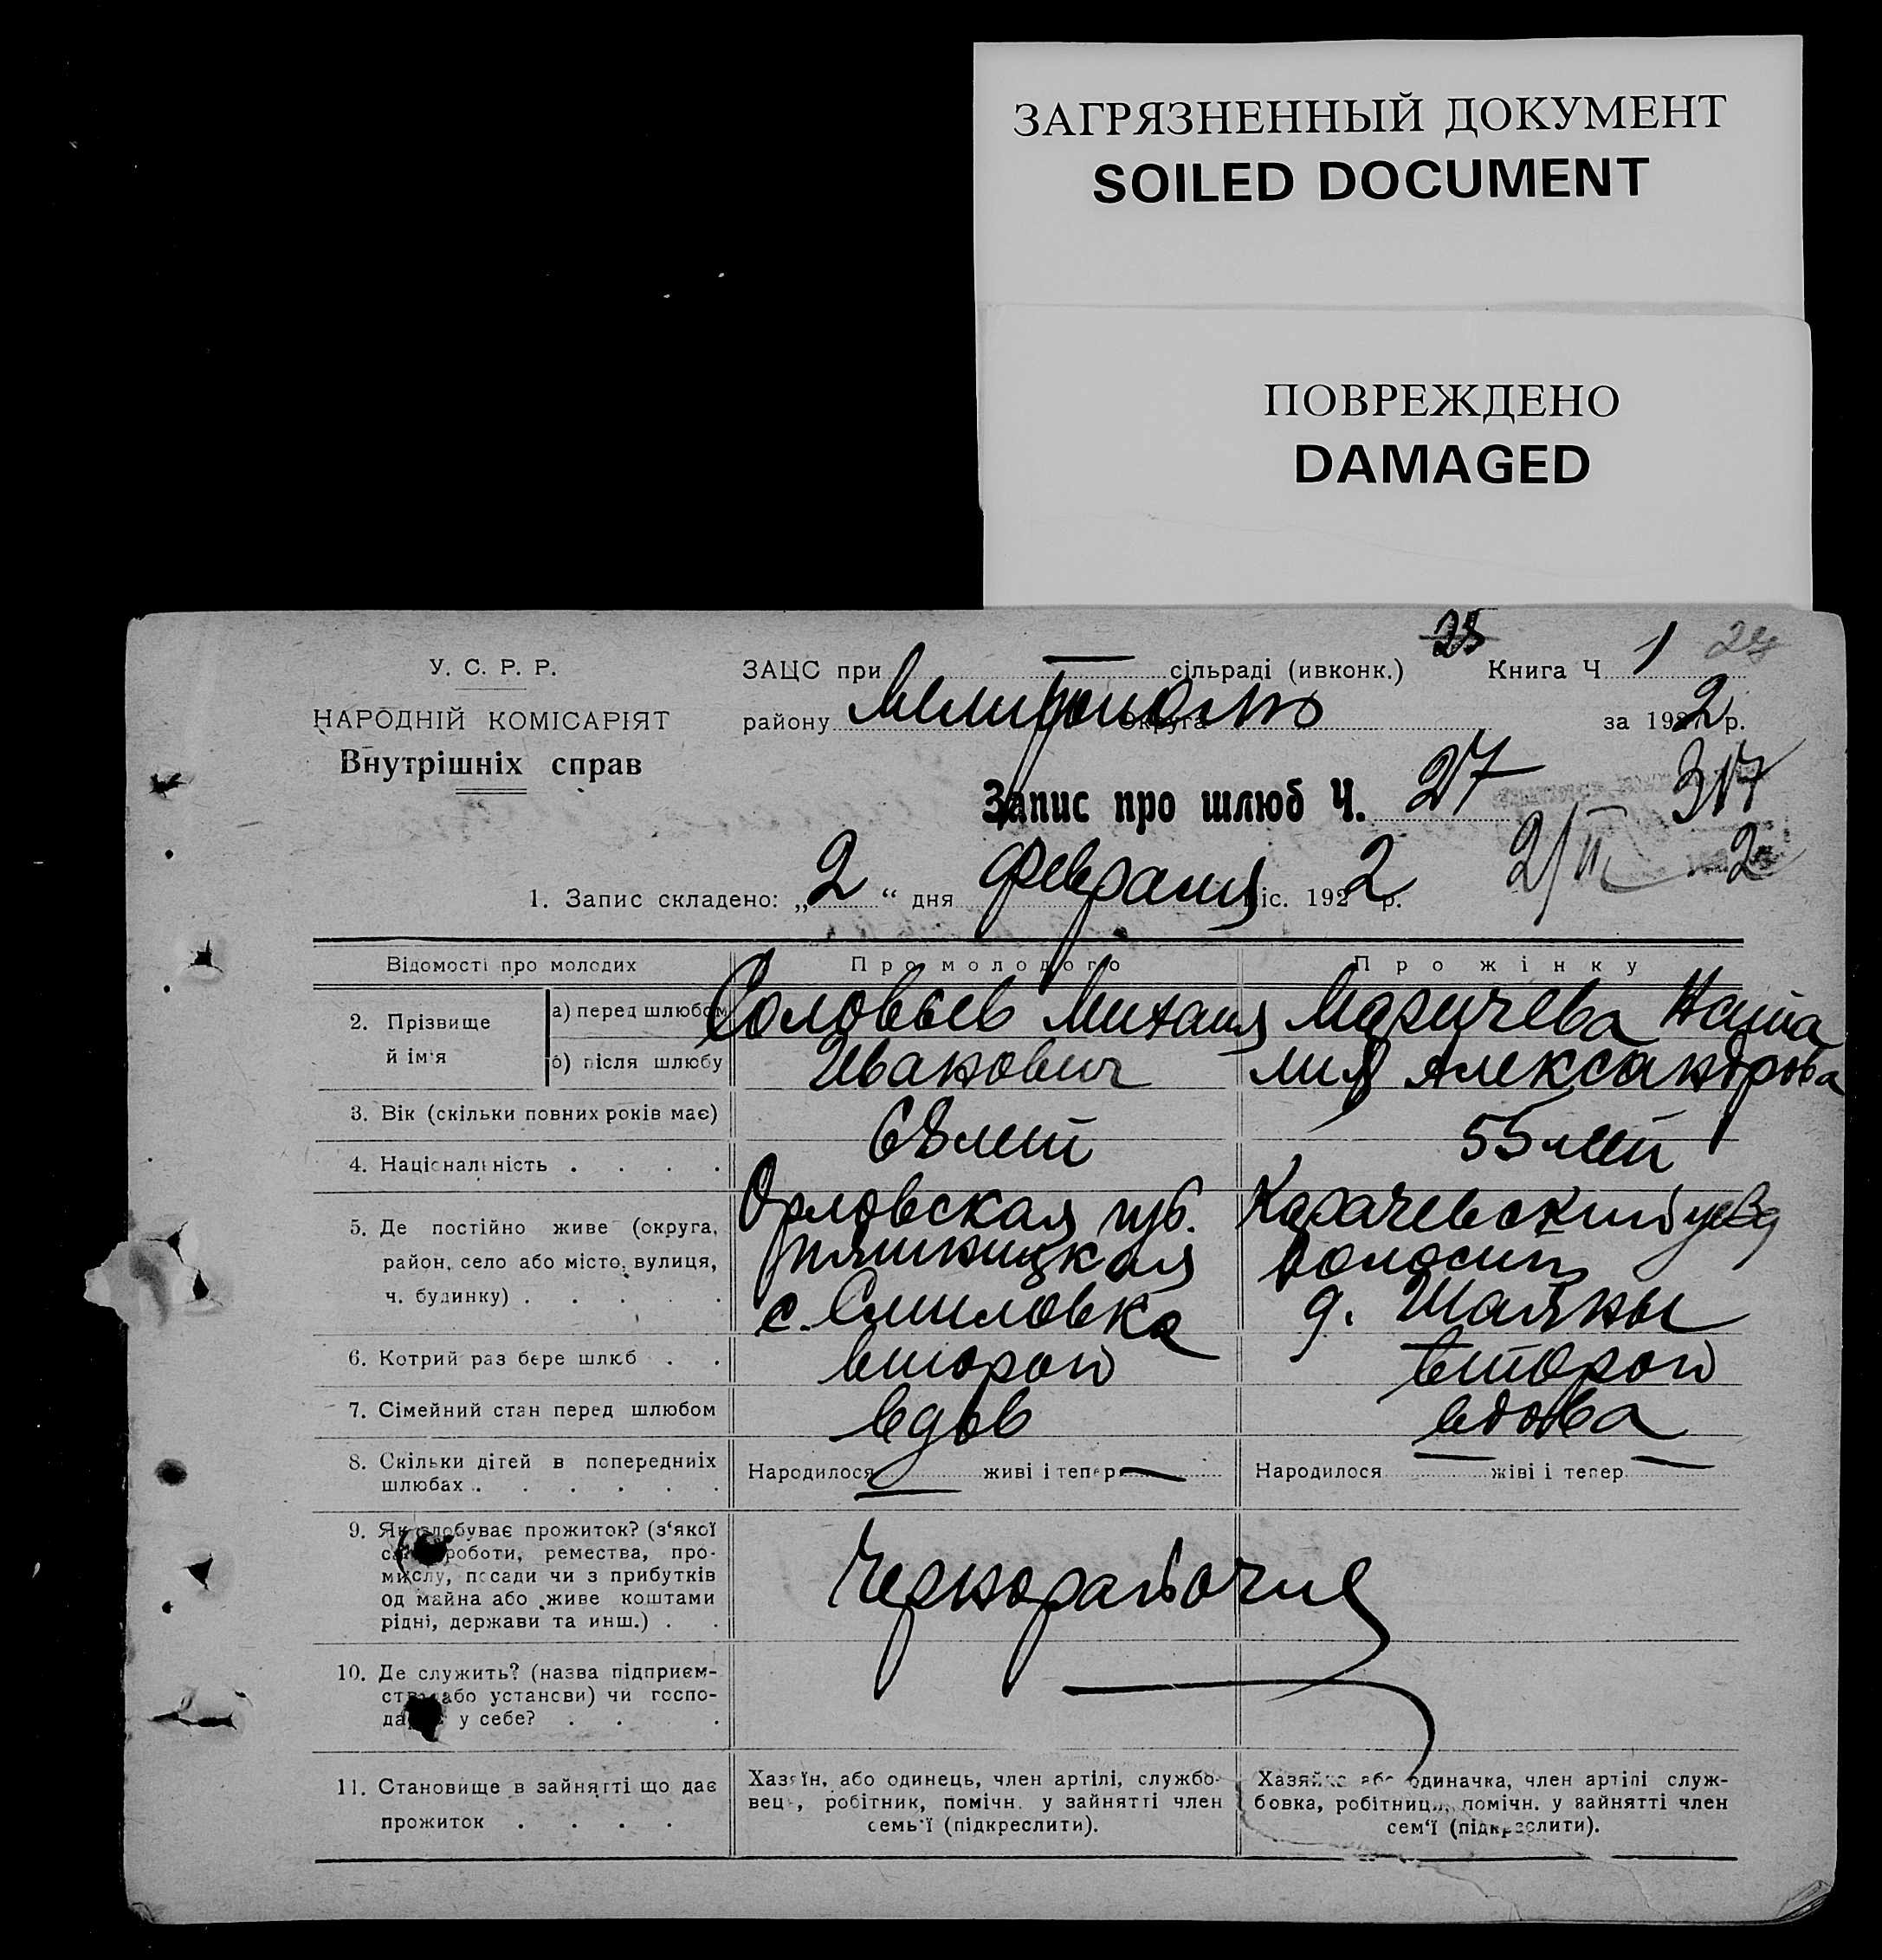 ЗАГРЯЗНЕННЫЙ ДОКУМЕНТ
SOILED DOCUMENT
ПОВРЕЖДЕНО
DAMAGED
У. С. Р. Р.
НАРОДНІЙ КОМІСАРІЯТ
Внутрішніх справ
25
ЗАЦС при — сільраді (ивконк.) Книга Ч 1 24
району Мелитополь округа за 1922 р.
Запис про шлюб Ч. 27 317
2/II 2
1. Запис складено: „2“ дня февраля міс. 1922 р.
Відомості про молодих Про молодого Про жінку
2. Прізвище й ім'я а) перед шлюбом Соловьев Михаил Маричева Ната
б) після шлюбу Иванович лия Александрова
3. Вік (скільки повних років має) 68 лет 55 лет
4. Національність . . . .
5. Де постійно живе (округа, Орловская губ. Карачевский уезд
район, село або місто, вулиця, волости
ч. будинку) . . . . . с. Смиловка д. Шаяны
6. Котрий раз бере шлюб . . второй второй
7. Сімейний стан перед шлюбом вдов вдова
8. Скільки дітей в попередніх Народилося — живі і тепер — Народилося — живі і тепер —
шлюбах . . . . . .
9. Як здобуває прожиток? (з'якої
саме роботи, ремества, про-
мислу, посади чи з прибутків Чернорабочие
од майна або живе коштами
рідні, держави та инш.) . .
10. Де служить? (назва підприєм-
ства або установи) чи госпо-
дарює у себе? . . .
11. Становище в зайнятті що дає Хазяїн, або одинець, член артілі, службо- Хазяйка або одиначка, член артілі служ-
прожиток . . . . вець, робітник, помічн. у зайнятті член бовка, робітниця, помічн. у зайнятті член
семь'ї (підкреслити). сем'ї (підкреслити).